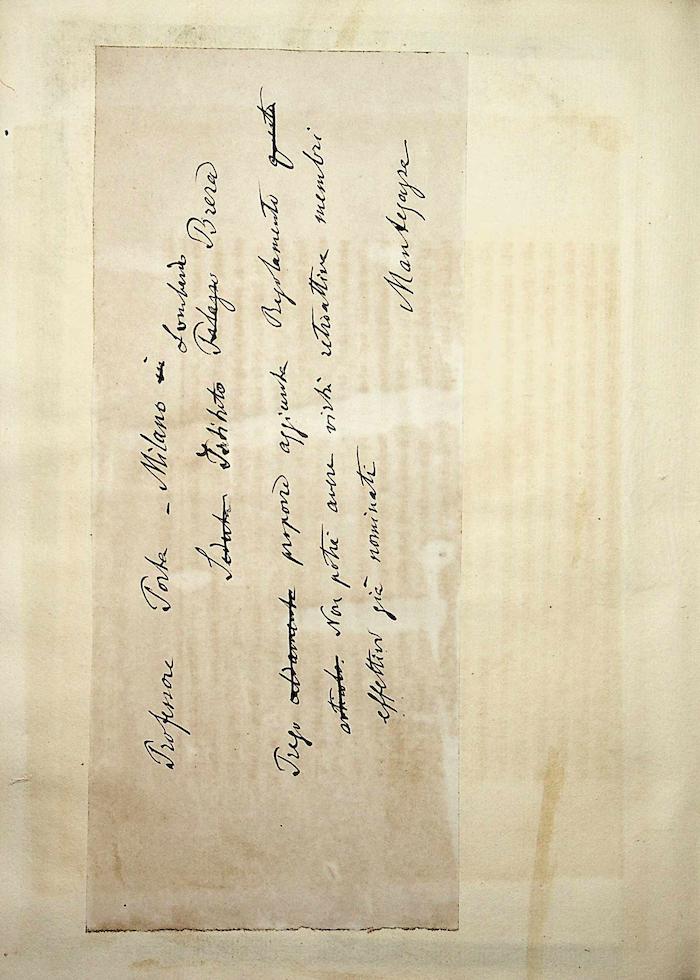 Professore Porta - Milano
Lombardo
Seduta Istituto Palazzo Brera
Prego caldamente proporre aggiunta Regolamento questo
articolo. Non potrà avere virtù retroattiva membri
effettivi già nominati
Mantegazza